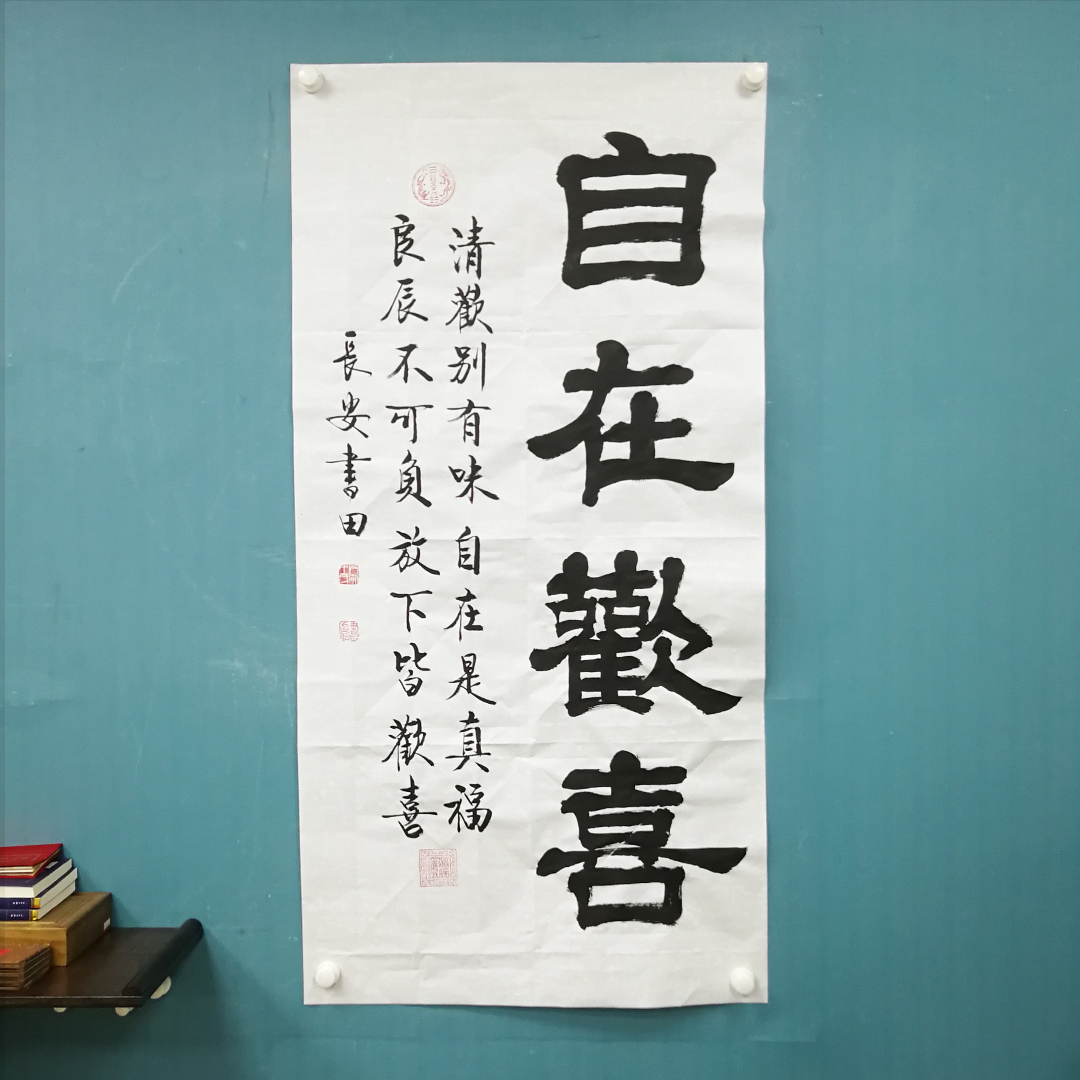 自在歡喜
清歡别有味自在是真福
良辰不可負放下皆歡喜
長安書田